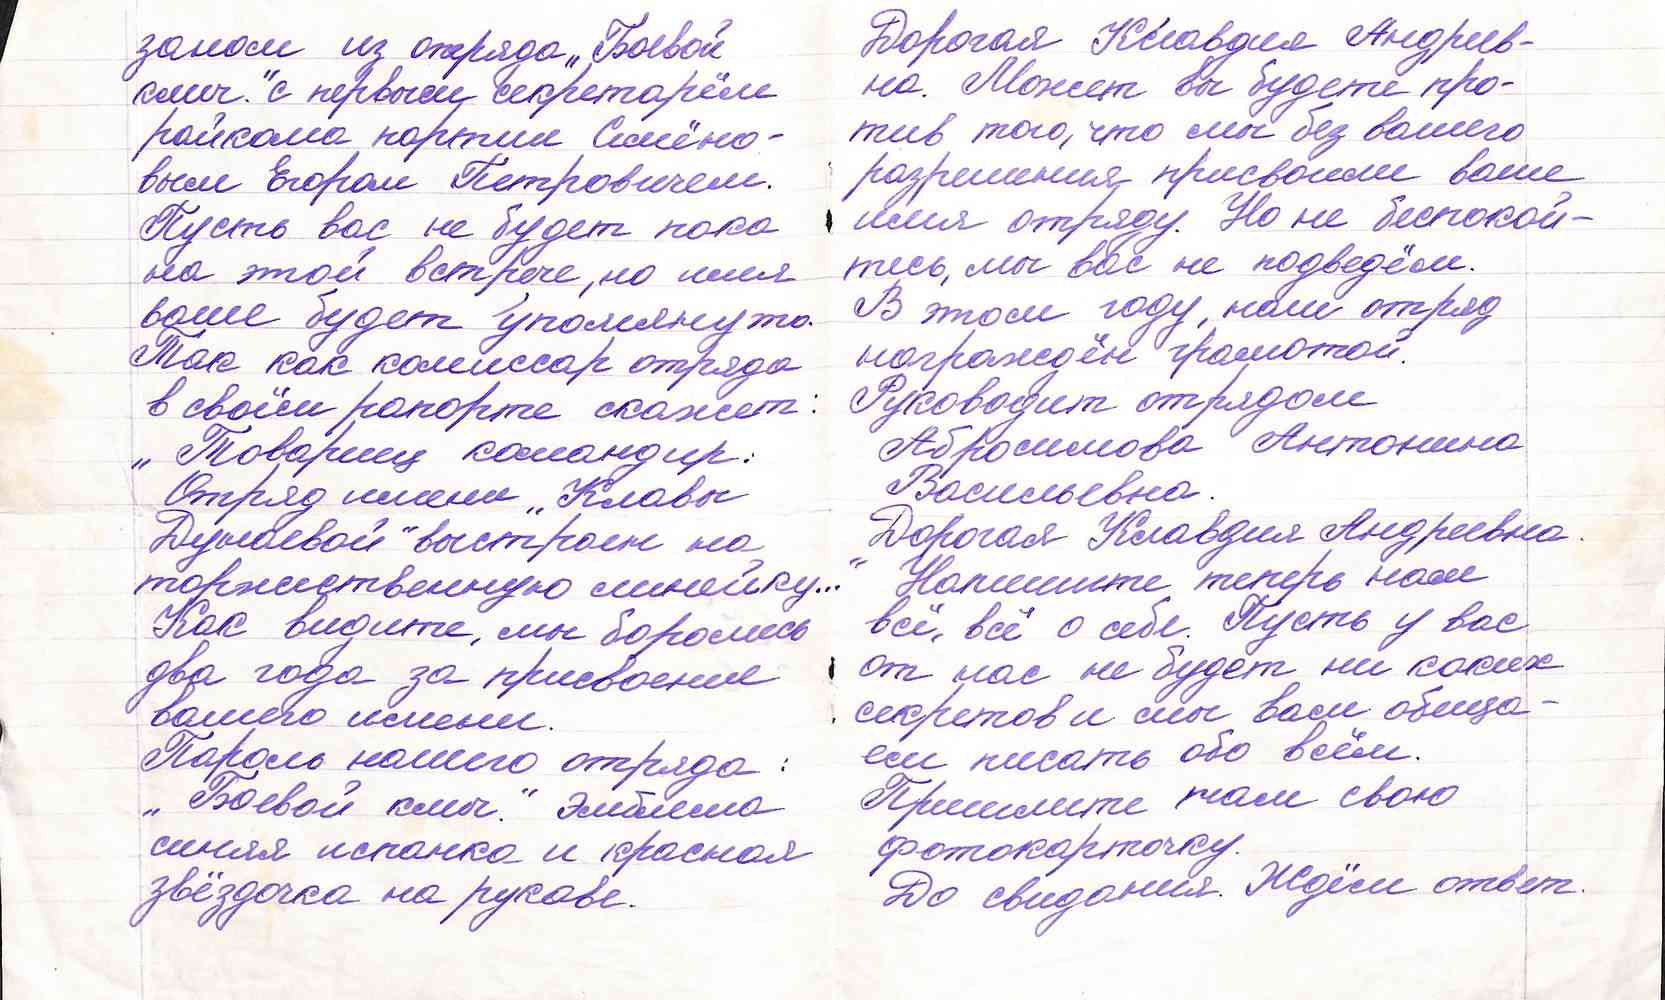 заном из отряда „Боевой
клич." с первым секретарём
райкома партии Семёно-
вым Егором Петровичем.
Пусть вас не будет пока
на этой встрече, но имя
ваше будет упомянуто.
Так как комиссар отряда
в своём рапорте скажет:
„Товарищ командир:
Отряд имени „Клавы
Дунаевой" выстроен на
торжественную линейку..."
Как видите, мы боролись
два года за присвоение
вашего имени.
Пароль нашего отряда:
„Боевой клич." Эмблема
синяя испанка и красная
звёздочка на рукаве.
Дорогая Клавдия Андреев-
на. Может вы будете про-
тив того, что мы без вашего
разрешения присвоили ваше
имя отряду. Но не беспокой-
тесь, мы вас не подведём.
В этом году, наш отряд
награждён грамотой.
Руководит отрядом
Абросимова Антонина
Васильевна.
Дорогая Клавдия Андреевна.
Напишите теперь нам
всё, всё о себе. Пусть у вас
от нас не будет ни каких
секретов и мы вам обеща-
ем писать обо всём.
Пришлите нам свою
фотокарточку.
До свидания. Ждём ответ.